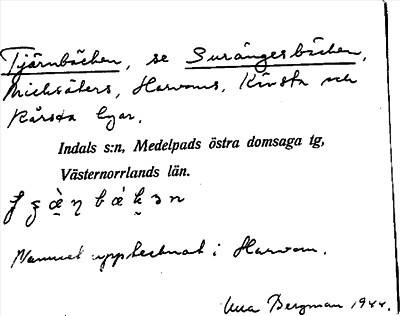 Tjärnbäcken, se Surängesbäcken,
Mickelsäters, Harvoms, Kävsta och
Kårsta byar.
Indals s:n, Medelpads östra domsaga tg,
Västernorrlands län.
Namnet upptecknat i Harvom.
Bergman 1944.